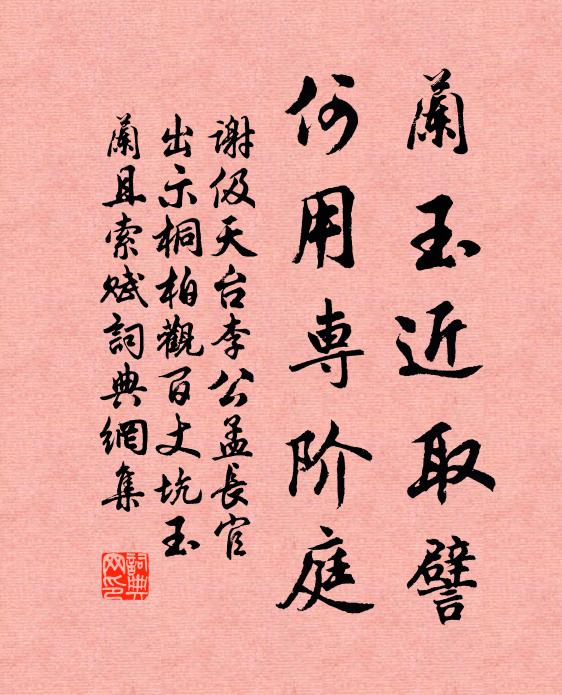 蘭玉近取譬
何用専阶庭
謝伋天台李公孟長官
出示桐柏觀百丈坑玉
蘭且索賦詞典網集
詞典網印